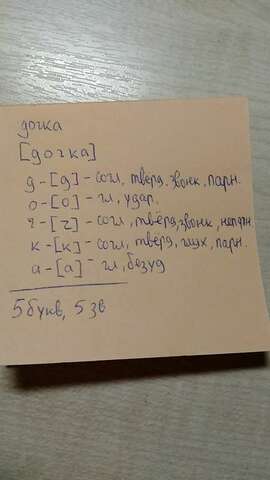 дочка
[дочка]
д-[д]-согл, твёрд. звонк, парн.
о-[о]-гл, удар.
ч-[ч]-согл, твёрд, звонк, непарн.
к-[к]-согл, твёрд, глух, парн.
а-[а]-гл, безуд
5 букв, 5 зв